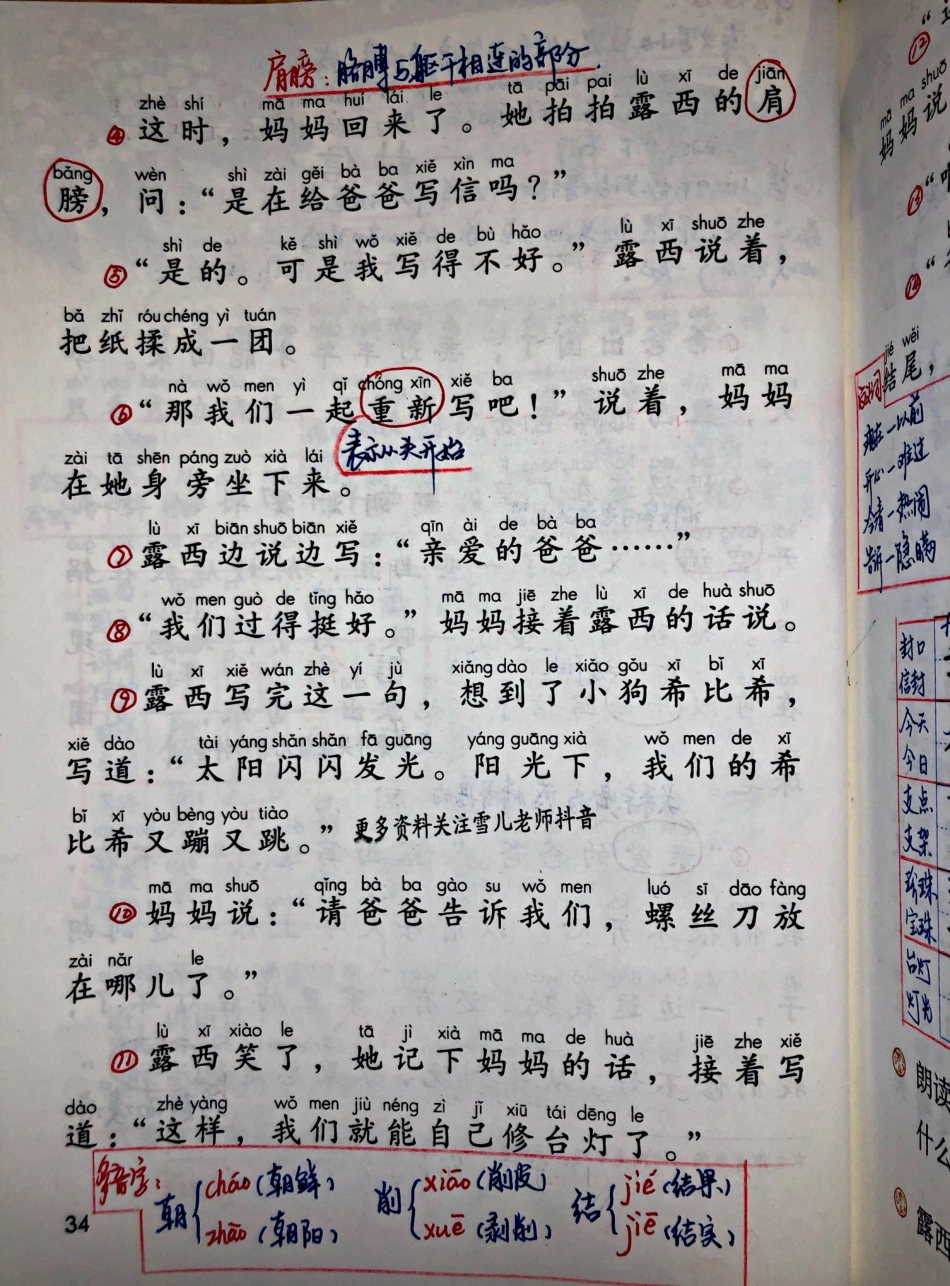 肩膀：胳膊与躯干相连的部分.
zhè shí mā ma huí lái le tā pāi pai lù xī de jiān
④这时，妈妈回来了。她拍拍露西的肩
bǎng wèn shì zài gěi bà ba xiě xìn ma
膀，问：“是在给爸爸写信吗？”
shì de kě shì wǒ xiě de bù hǎo lù xī shuō zhe
⑤“是的。可是我写得不好。”露西说着，
bǎ zhǐ róu chéng yì tuán
把纸揉成一团。
nà wǒ men yì qǐ chóng xīn xiě ba shuō zhe mā ma
⑥“那我们一起重新写吧！”说着，妈妈
表示从头开始
zài tā shēn páng zuò xià lái
在她身旁坐下来。
lù xī biān shuō biān xiě qīn ài de bà ba
⑦露西边说边写：“亲爱的爸爸……”
wǒ men guò de tǐng hǎo mā ma jiē zhe lù xī de huà shuō
⑧“我们过得挺好。”妈妈接着露西的话说。
lù xī xiě wán zhè yí jù xiǎng dào le xiǎo gǒu xī bǐ xī
⑨露西写完这一句，想到了小狗希比希，
xiě dào tài yáng shǎn shǎn fā guāng yáng guāng xià wǒ men de xī
写道：“太阳闪闪发光。阳光下，我们的希
bǐ xī yòu bèng yòu tiào
比希又蹦又跳。”更多资料关注雪儿老师抖音
mā ma shuō qǐng bà ba gào su wǒ men luó sī dāo fàng
⑩妈妈说：“请爸爸告诉我们，螺丝刀放
zài nǎr le
在哪儿了。”
lù xī xiào le tā jì xià mā ma de huà jiē zhe xiě
⑪露西笑了，她记下妈妈的话，接着写
dào zhè yàng wǒ men jiù néng zì jǐ xiū tái dēng le
道：“这样，我们就能自己修台灯了。”
多音字：
朝 cháo（朝鲜） zhāo（朝阳）
削 xiāo（削皮） xuē（剥削）
结 jié（结果） jiē（结实）
34
⑫
mā ma shuō
妈妈说
⑬
⑭
jié wěi
结尾，
现在—以前
开心—难过
冷清—热闹
告诉—隐瞒
封口
信封
今天
今日
支点
支架
珍珠
宝珠
台灯
灯光
朗读
什么
露西